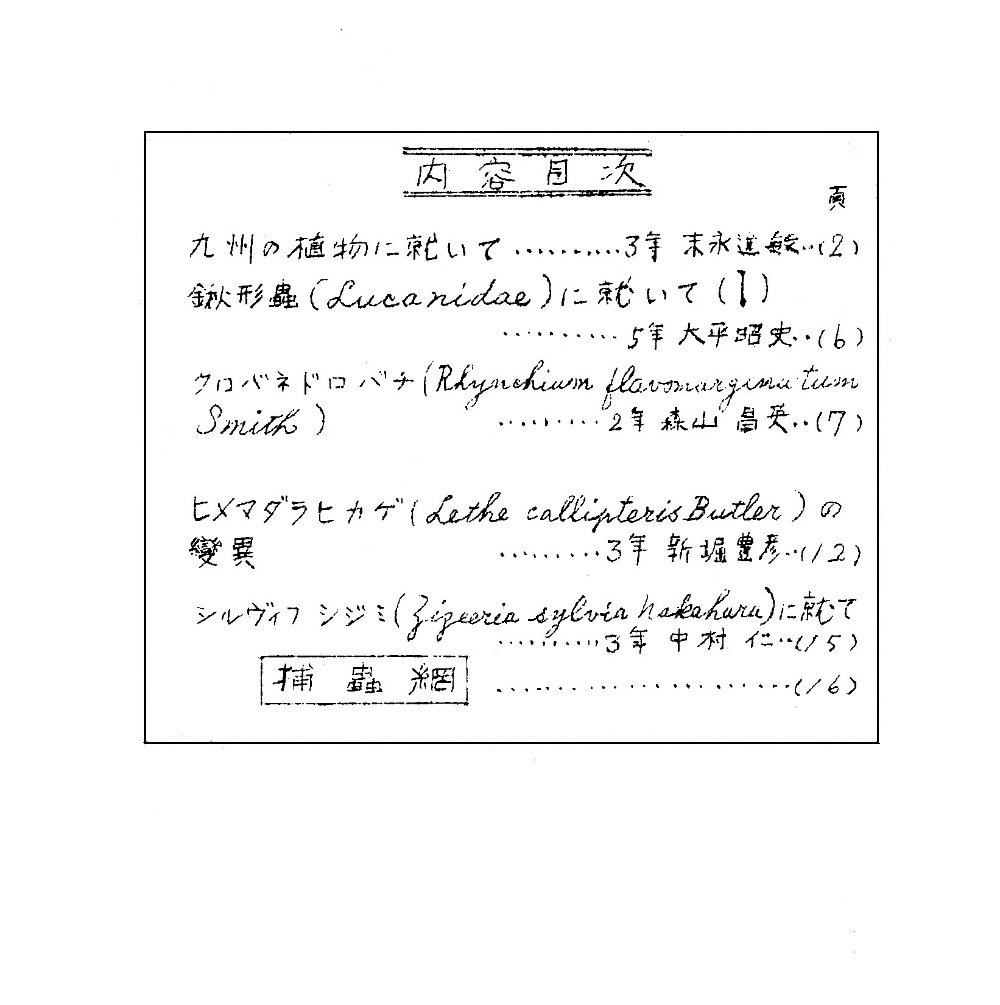 内容目次
頁
九州の植物に就いて ‥‥‥‥‥ 3年 末永進敏‥(2)
鍬形蟲(Lucanidae)に就いて(1)
‥‥‥‥‥ 5年 大平昭史‥(6)
クロバネドロバチ(Rhynchium flavomarginatum
Smith) ‥‥‥‥‥ 2年 森山 昌英‥(7)
ヒメマダラヒカゲ(Lethe callipteris Butler)の
變異 ‥‥‥‥‥ 3年 新堀豊彦‥(12)
シルヴィフ シジミ(Zizeeria sylvia Nakahara)に就て
‥‥‥‥‥ 3年 中村 仁‥(15)
捕蟲網 ‥‥‥‥‥‥‥‥‥‥(16)